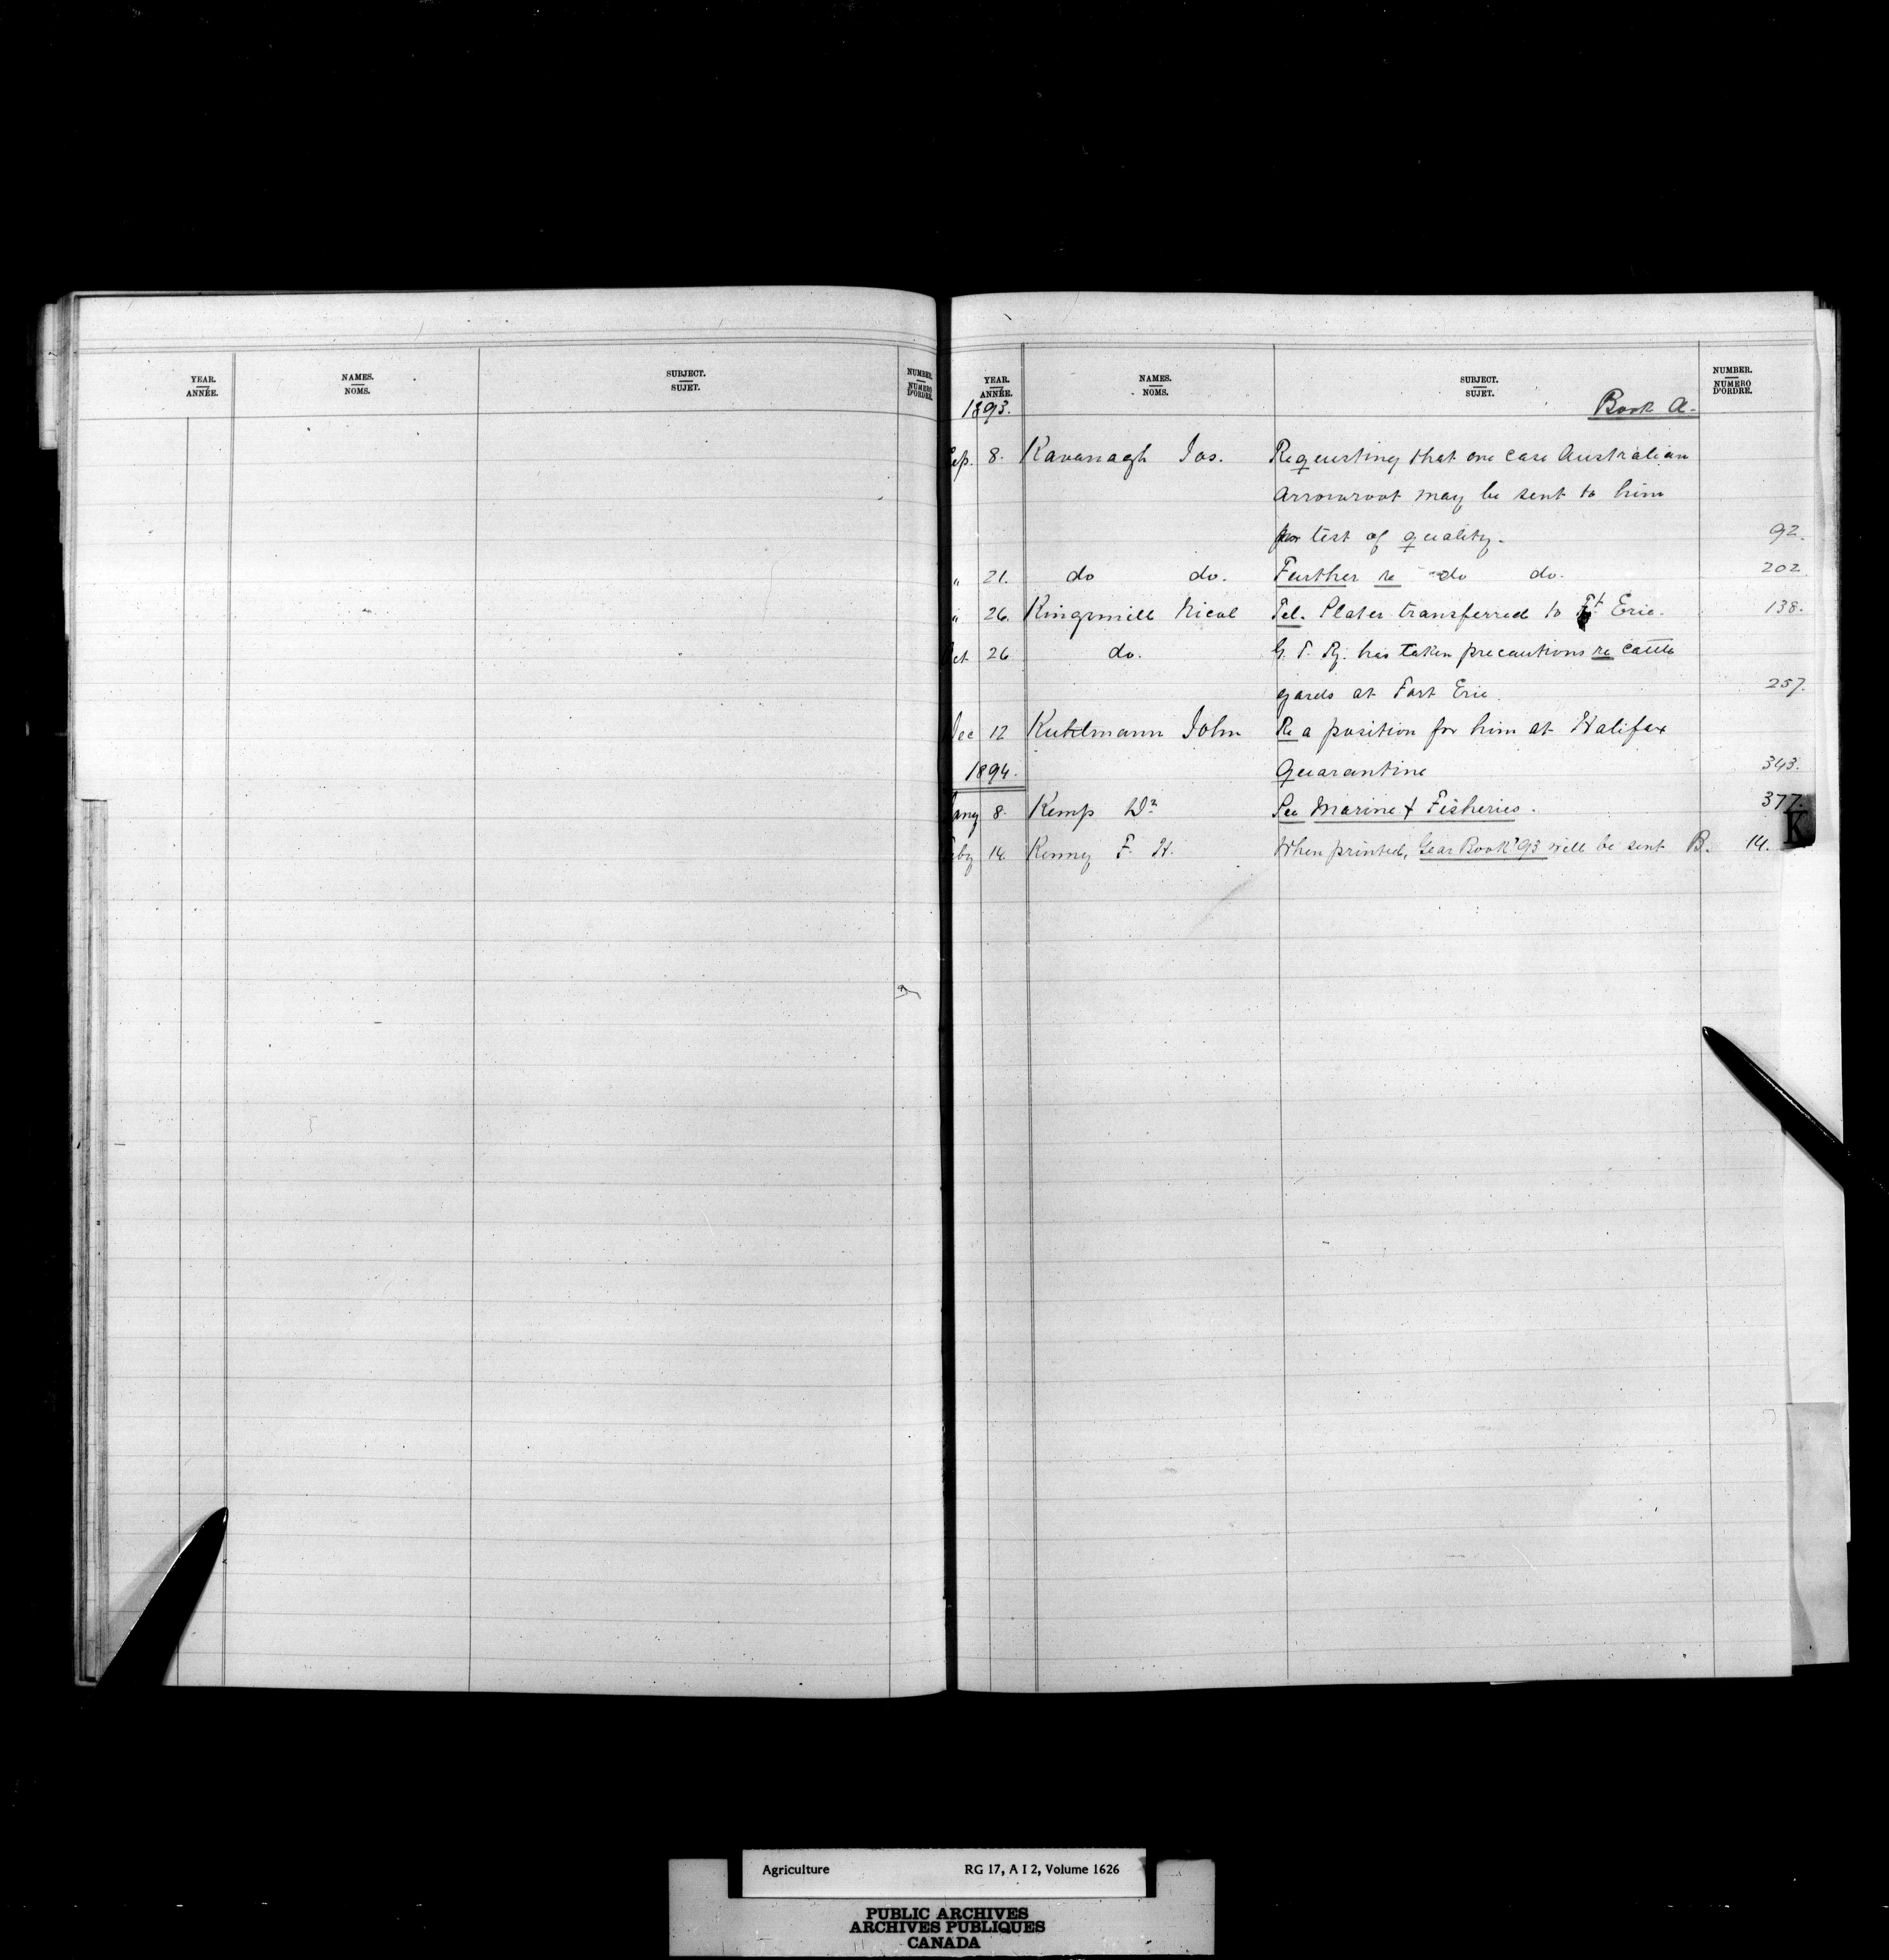 YEAR. NAMES. SUBJECT. NUMBER.
ANNÉE. NOMS. SUJET. NUMÉRO D'ORDRE.
YEAR. NAMES. SUBJECT. NUMBER.
ANNÉE. NOMS. SUJET. NUMÉRO D'ORDRE.
1893. Book A.
Sep. 8. Kavanagh Jas. Requesting that one case Australian
Arrowroot may be sent to him
for test of quality. 92.
" 21. do do. Further re do do. 202
" 26. Kingsmill Nicol Tel. Plates transferred to Ft Erie. 138.
Oct 26 do. G. T. Ry. has taken precautions re cattle
yards at Fort Erie. 257.
Dec 12 Kuhlmann John Re a position for him at Halifax
1894. Quarantine 343.
Jany 8. Kemp Dr See Marine & Fisheries. 377.
K
Feby 14. Kenny F. H. When printed, Year Book '93 will be sent B. 14.
Agriculture RG 17, A I 2, Volume 1626
PUBLIC ARCHIVES
ARCHIVES PUBLIQUES
CANADA